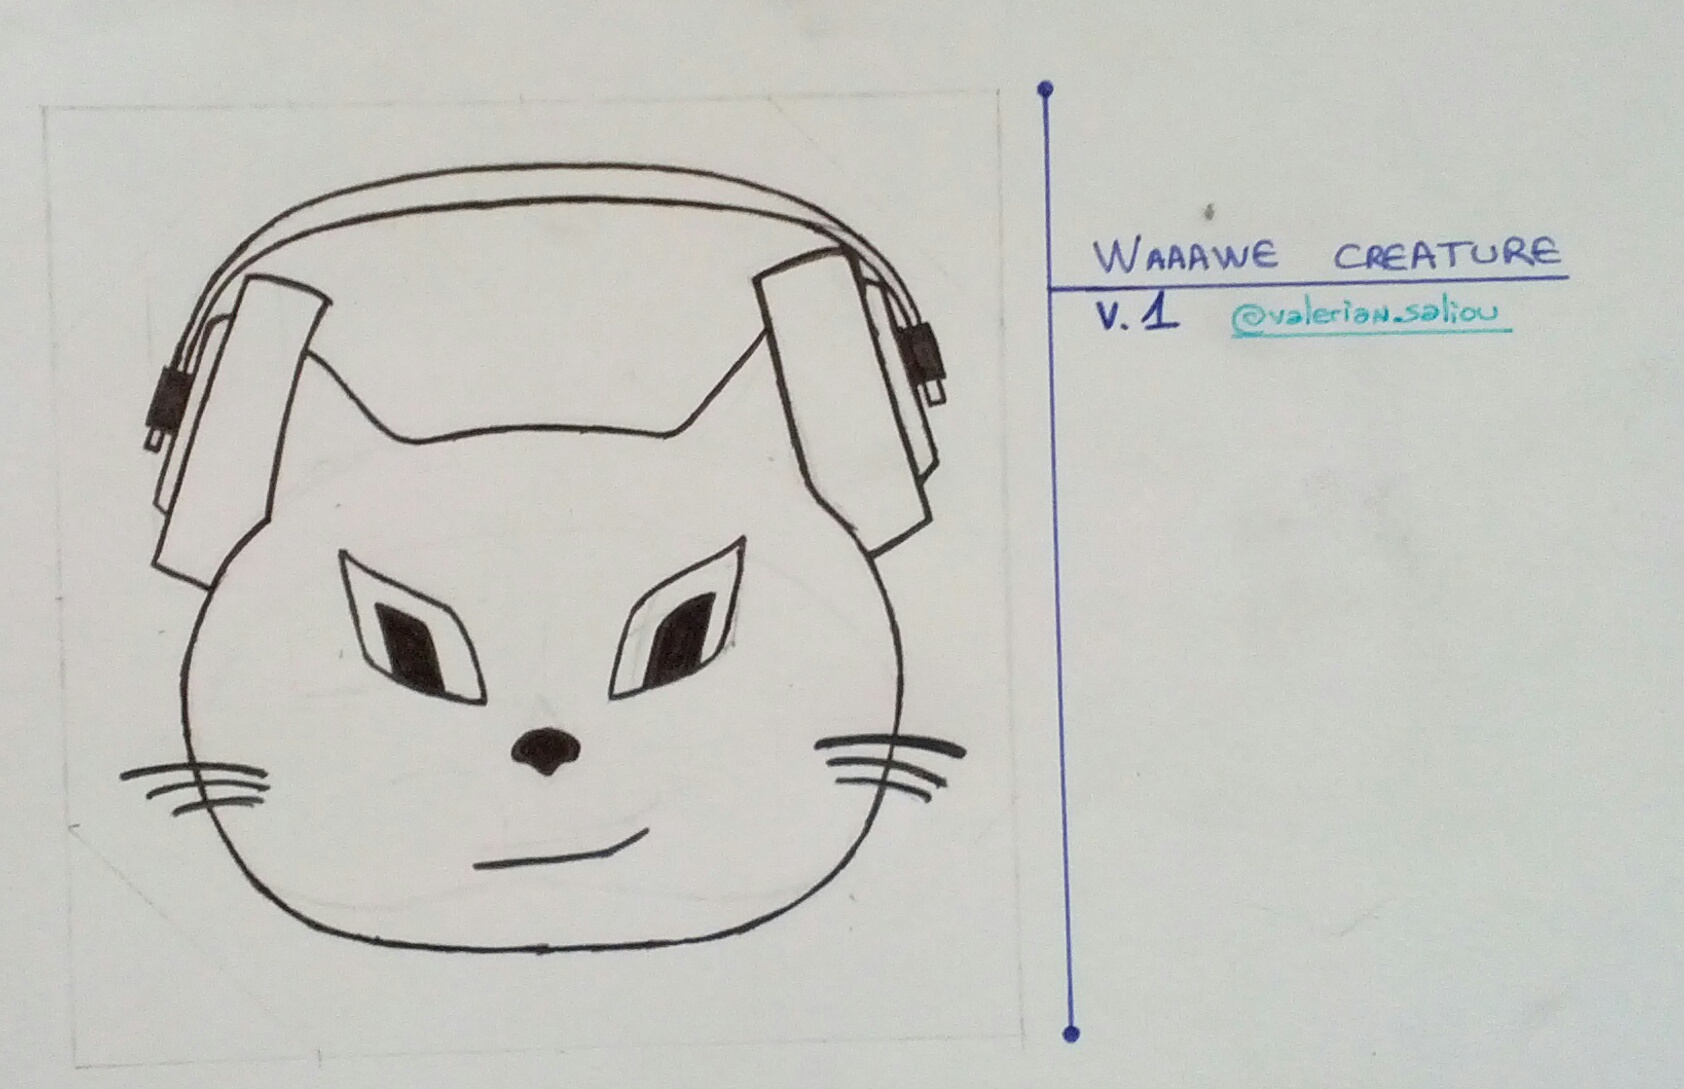 WAAAWE CREATURE
V.1 @valerian.saliou